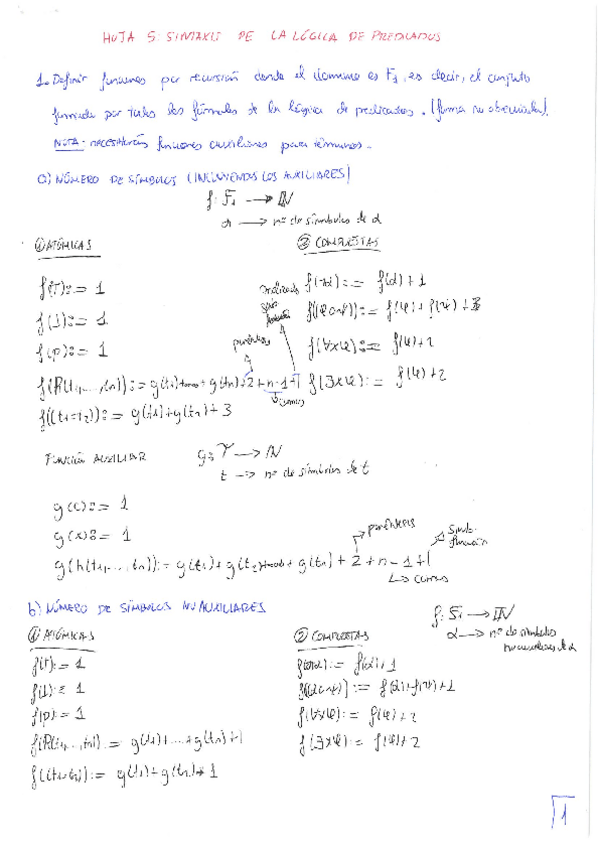 HOJA 5: SINTAXIS DE LA LÓGICA DE PREDICADOS
1. Definir funciones por recursión donde el dominio es F1, es decir, el conjunto
formado por todas las fórmulas de la lógica de predicados. (forma no abreviada).
NOTA: necesitarás funciones auxiliares para términos.
a) NÚMERO DE SÍMBOLOS (INCLUYENDO LOS AUXILIARES)
f: F1 → IN
α → nº de símbolos de α
① ATÓMICAS
② COMPUESTAS
f(T) := 1
f(⊥) := 1
f(p) := 1
f(R(t1,...,tn)) := g(t1)+...+g(tn)+2+n-1+1
paréntesis
f((t1=t2)) := g(t1)+g(t2)+3
f(¬α) := f(α)+1
f((φ∘ψ)) := f(φ)+f(ψ)+3
f(∀xφ) := f(φ)+2
f(∃xφ) := f(φ)+2
FUNCIÓN AUXILIAR
g: T → IN
t → nº de símbolos de t
g(c) := 1
g(x) := 1
g(h(t1,...,tn)) := g(t1)+g(t2)+...+g(tn)+2+n-1+1
paréntesis
símbolo función
comas
b) NÚMERO DE SÍMBOLOS NO AUXILIARES
f: F1 → IN
α → nº de símbolos
no auxiliares de α
① ATÓMICAS
② COMPUESTAS
f(T) := 1
f(⊥) := 1
f(p) := 1
f(R(t1,...,tn)) := g(t1)+...+g(tn)+1
f((t1=t2)) := g(t1)+g(t2)+1
f(¬α) := f(α)+1
f((φ∘ψ)) := f(φ)+f(ψ)+1
f(∀xφ) := f(φ)+2
f(∃xφ) := f(φ)+2
1